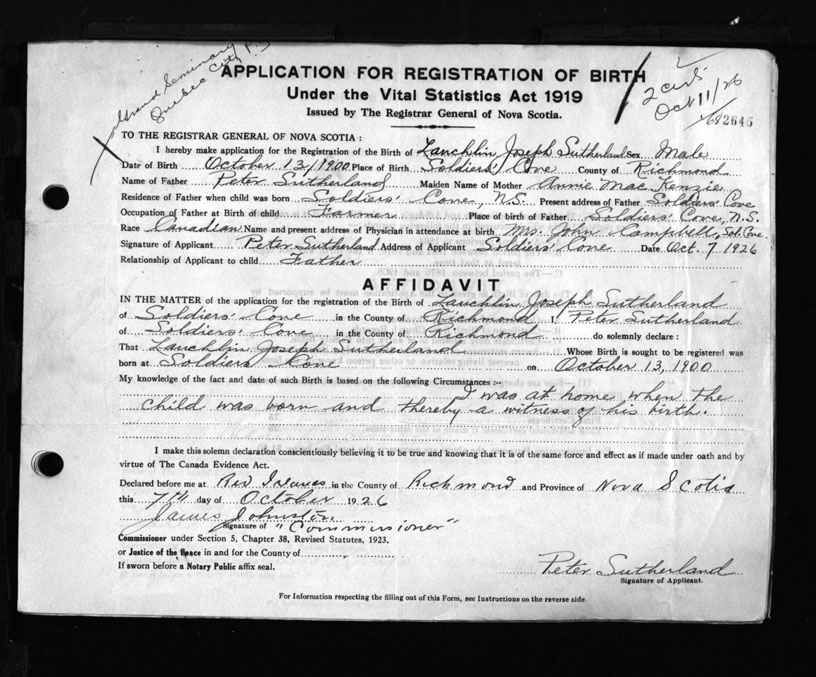 Grand Seminary
Quebec City P.Q.
2 certs
Oct 11/26
682645
APPLICATION FOR REGISTRATION OF BIRTH
Under the Vital Statistics Act 1919
Issued by The Registrar General of Nova Scotia.
TO THE REGISTRAR GENERAL OF NOVA SCOTIA :
I hereby make application for the Registration of the Birth of Lauchlin Joseph Sutherland Sex Male
Date of Birth October 13/1900 Place of Birth Soldiers' Cove County of Richmond
Name of Father Peter Sutherland Maiden Name of Mother Annie Mac Kenzie
Residence of Father when child was born Soldiers' Cove, N.S. Present address of Father Soldiers' Cove
Occupation of Father at Birth of child Farmer Place of birth of Father Soldiers' Cove, N.S.
Race Canadian Name and present address of Physician in attendance at birth Mrs. John Campbell, Sol. Cove
Signature of Applicant Peter Sutherland Address of Applicant Soldiers' Cove Date Oct. 7 1926
Relationship of Applicant to child Father
AFFIDAVIT
IN THE MATTER of the application for the registration of the Birth of Lauchlin Joseph Sutherland
of Soldiers' Cove in the County of Richmond I, Peter Sutherland
of Soldiers' Cove in the County of Richmond do solemnly declare :
That Lauchlin Joseph Sutherland Whose Birth is sought to be registered was
born at Soldiers Cove on October 13, 1900
My knowledge of the fact and date of such Birth is based on the following Circumstances :-
I was at home when the
child was born and thereby a witness of his birth.
I make this solemn declaration conscientiously believing it to be true and knowing that it is of the same force and effect as if made under oath and by
virtue of The Canada Evidence Act.
Declared before me at Red Islands in the County of Richmond and Province of Nova Scotia
this 7th day of October 1926
James Johnston
Signature of "Commissioner"
Commissioner under Section 5, Chapter 38, Revised Statutes, 1923,
or Justice of the Peace in and for the County of
If sworn before a Notary Public affix seal.
Peter Sutherland
Signature of Applicant.
For Information respecting the filling out of this Form, see Instructions on the reverse side.